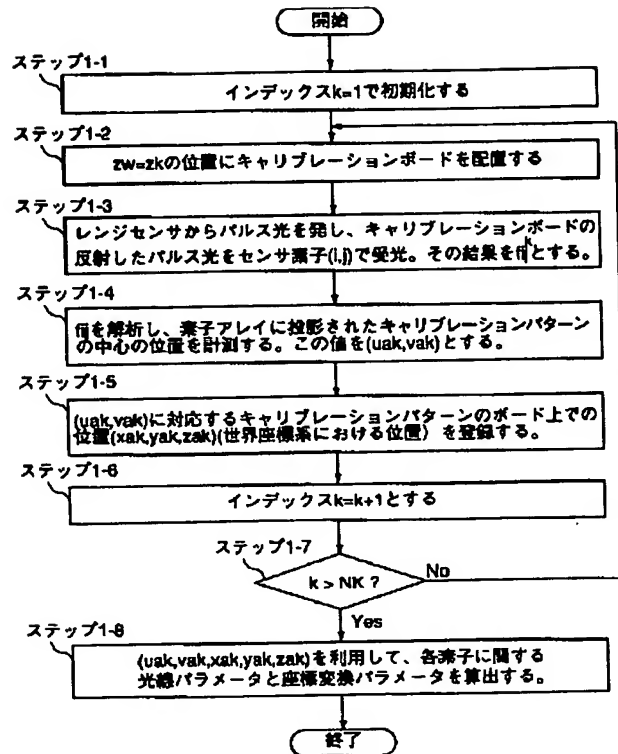 開始
ステップ1-1
インデックスk=1で初期化する
ステップ1-2
zw=zkの位置にキャリブレーションボードを配置する
ステップ1-3
レンジセンサからパルス光を発し、キャリブレーションボードの
反射したパルス光をセンサ素子(i,j)で受光。その結果を とする。
ステップ1-4
を解析し、素子アレイに投影されたキャリブレーションパターン
の中心の位置を計測する。この値を(uak,vak)とする。
ステップ1-5
(uak,vak)に対応するキャリブレーションパターンのボード上での
位置(xak,yak,zak)(世界座標系における位置）を登録する。
ステップ1-6
インデックスk=k+1とする
ステップ1-7
k > NK ?
No
Yes
ステップ1-8
(uak,vak,xak,yak,zak)を利用して、各素子に関する
光線パラメータと座標変換パラメータを算出する。
終了